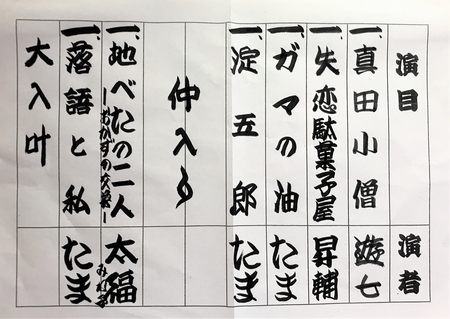 演目 演者
一、真田小僧 遊七
一、失恋駄菓子屋 昇輔
一、ガマの油 たま
一、淀五郎 たま
仲入り
一、地べたの二人 太福
―おかずの交換― みね子
一、落語と私 たま
大入叶